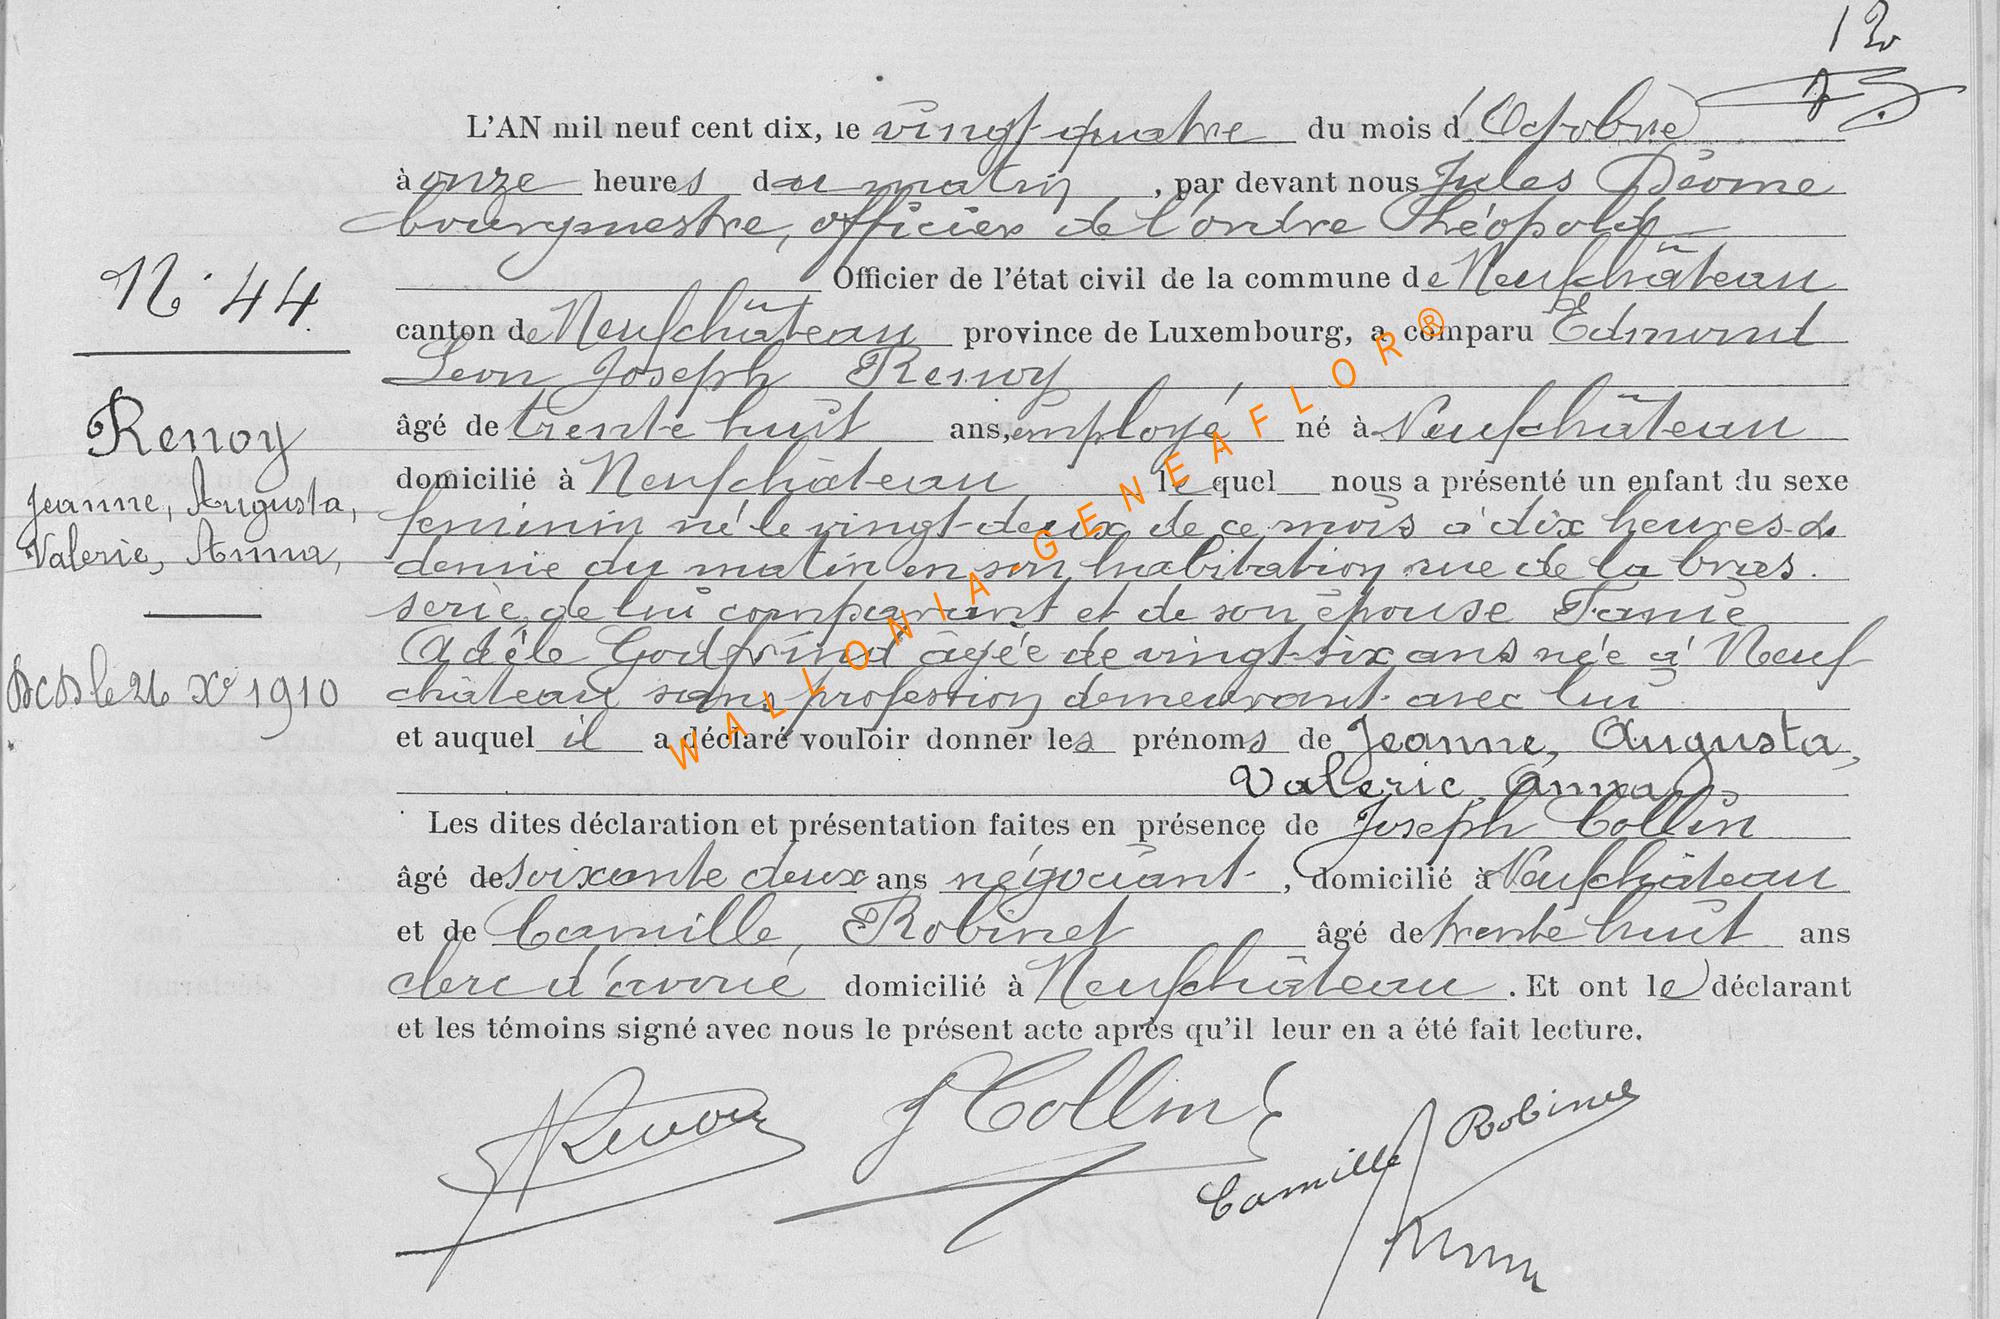 12
L'AN mil neuf cent dix, le vingt-quatre du mois d'Octobre
à onze heures du matin, par devant nous Jules
bourgmestre, officier de l'ordre Léopold
Officier de l'état civil de la commune de Neufchâteau
canton de Neufchâteau province de Luxembourg, a comparu Edmond
Leon Joseph Renoy
âgé de trente huit ans, employé né à Neufchâteau
domicilié à Neufchâteau lequel nous a présenté un enfant du sexe
feminin né le vingt-deux de ce mois à dix heures &
demie du matin en son habitation rue de la bras.
serie, de lui comparant et de son épouse
Adèle Godfrind âgée de vingt-six ans née à Neuf
château sans profession demeurant avec lui
et auquel il a déclaré vouloir donner les prénoms de Jeanne, Augusta,
Valerie, Anna
Les dites déclaration et présentation faites en présence de Joseph Collin
âgé de soixante deux ans négociant, domicilié à Neufchâteau
et de Camille, Robinet âgé de trente huit ans
clerc d'avoué domicilié à Neufchâteau. Et ont le déclarant
et les témoins signé avec nous le présent acte après qu'il leur en a été fait lecture.
N° 44
Renoy
Jeanne, Augusta,
Valerie, Anna,
le 26 Xe 1910
Renoy
J Collin
Camille Robinet
WALLONIA-GENEAFLOR®